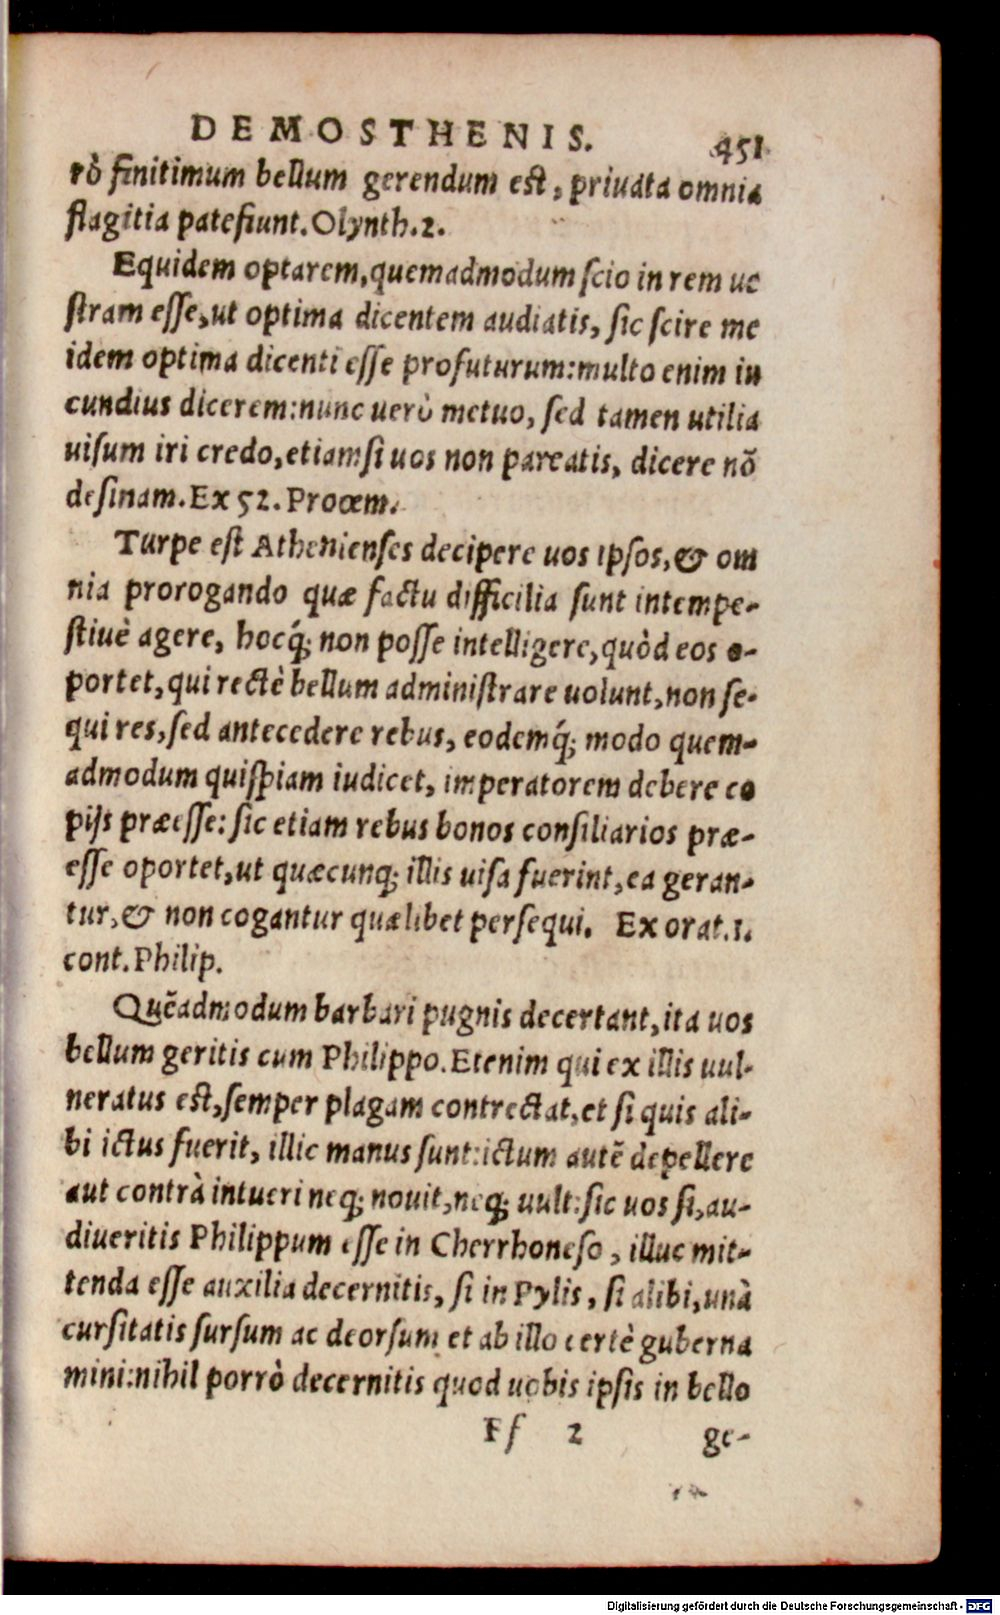 DEMOSTHENIS. 451
rò finitimum bellum gerendum est, priuata omnia
flagitia patefiunt. Olynth. 2.
Equidem optarem, quemadmodum scio in rem ue
stram esse, ut optima dicentem audiatis, sic scire me
idem optima dicenti esse profuturum: multo enim iu
cundius dicerem: nunc uerò metuo, sed tamen utilia
uisum iri credo, etiamsi uos non pareatis, dicere nõ
desinam. Ex 52. Prooem.
Turpe est Athenienses decipere uos ipsos, & om
nia prorogando quæ factu difficilia sunt intempe-
stiuè agere, hocq́; non posse intelligere, quòd eos o-
portet, qui rectè bellum administrare uolunt, non se-
qui res, sed antecedere rebus, eodemq́; modo quem-
admodum quispiam iudicet, imperatorem debere co
pijs præesse: sic etiam rebus bonos consiliarios præ-
esse oportet, ut quæcunq; illis uisa fuerint, ea geran-
tur, & non cogantur quælibet persequi. Ex orat. 1.
cont. Philip.
Quẽadmodum barbari pugnis decertant, ita uos
bellum geritis cum Philippo. Etenim qui ex illis uul-
neratus est, semper plagam contrectat, et si quis ali-
bi ictus fuerit, illic manus sunt: ictum autẽ depellere
aut contrà intueri neq; nouit, neq; uult: sic uos si, au-
diueritis Philippum esse in Cherrhoneso, illuc mit-
tenda esse auxilia decernitis, si in Pylis, si alibi, unà
cursitatis sursum ac deorsum et ab illo certè guberna
mini: nihil porrò decernitis quod uobis ipsis in bello
Ff 2 ge-
Digitalisierung gefördert durch die Deutsche Forschungsgemeinschaft - DFG